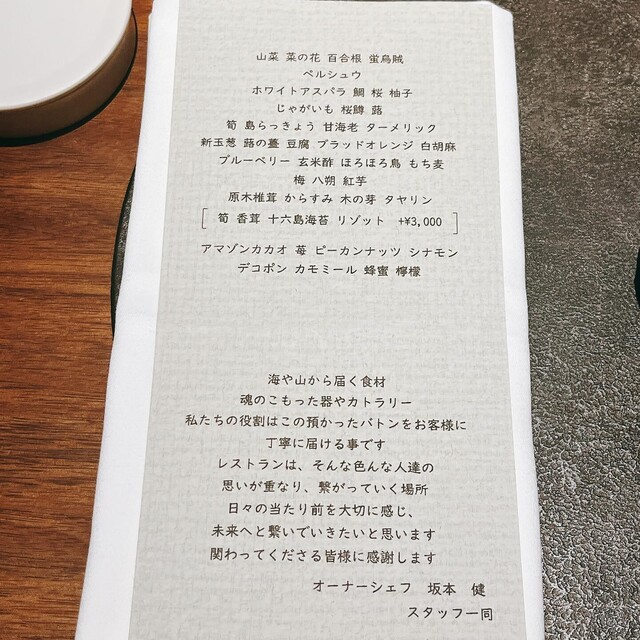 山菜 菜の花 百合根 蛍烏賊
ペルシュウ
ホワイトアスパラ 鯛 桜 柚子
じゃがいも 桜鱒 蕗
筍 島らっきょう 甘海老 ターメリック
新玉葱 蕗の薹 豆腐 ブラッドオレンジ 白胡麻
ブルーベリー 玄米酢 ほろほろ鳥 もち麦
梅 八朔 紅芋
原木椎茸 からすみ 木の芽 タヤリン
[ 筍 香茸 十六島海苔 リゾット +¥3,000 ]
アマゾンカカオ 苺 ピーカンナッツ シナモン
デコポン カモミール 蜂蜜 檸檬
海や山から届く食材
魂のこもった器やカトラリー
私たちの役割はこの預かったバトンをお客様に
丁寧に届ける事です
レストランは、そんな色んな人達の
思いが重なり、繋がっていく場所
日々の当たり前を大切に感じ、
未来へと繋いでいきたいと思います
関わってくださる皆様に感謝します
オーナーシェフ 坂本 健
スタッフ一同